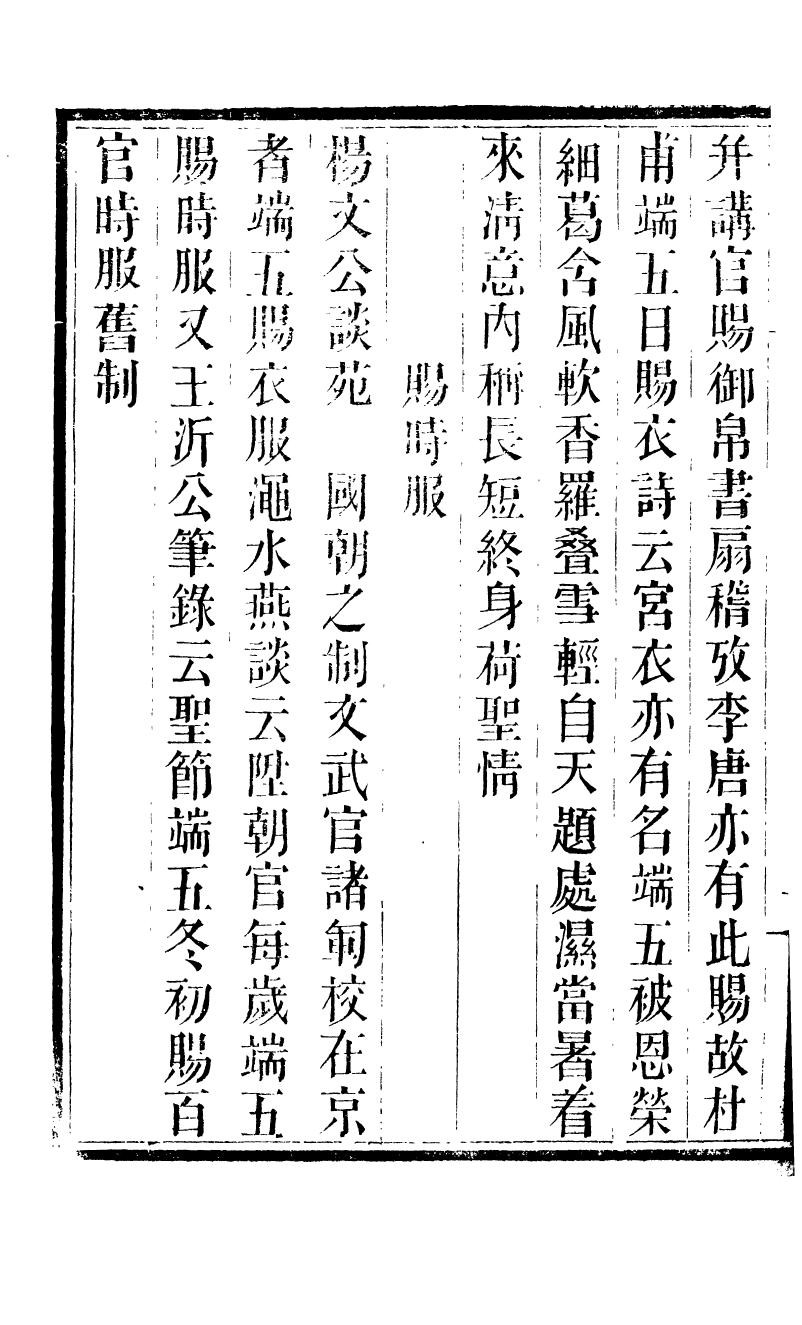 并講官賜御帛書扇稽攷李唐亦有此賜故杜
甫端五日賜衣詩云宮衣亦有名端五被恩榮
細葛含風軟香羅疊雪輕自天題處濕當暑着
來清意內稱長短終身荷聖情
賜時服
楊文公談苑　國朝之制文武官諸軍校在京
者端五賜衣服澠水燕談云陞朝官每歲端五
賜時服又王沂公筆錄云聖節端五冬初賜百
官時服舊制